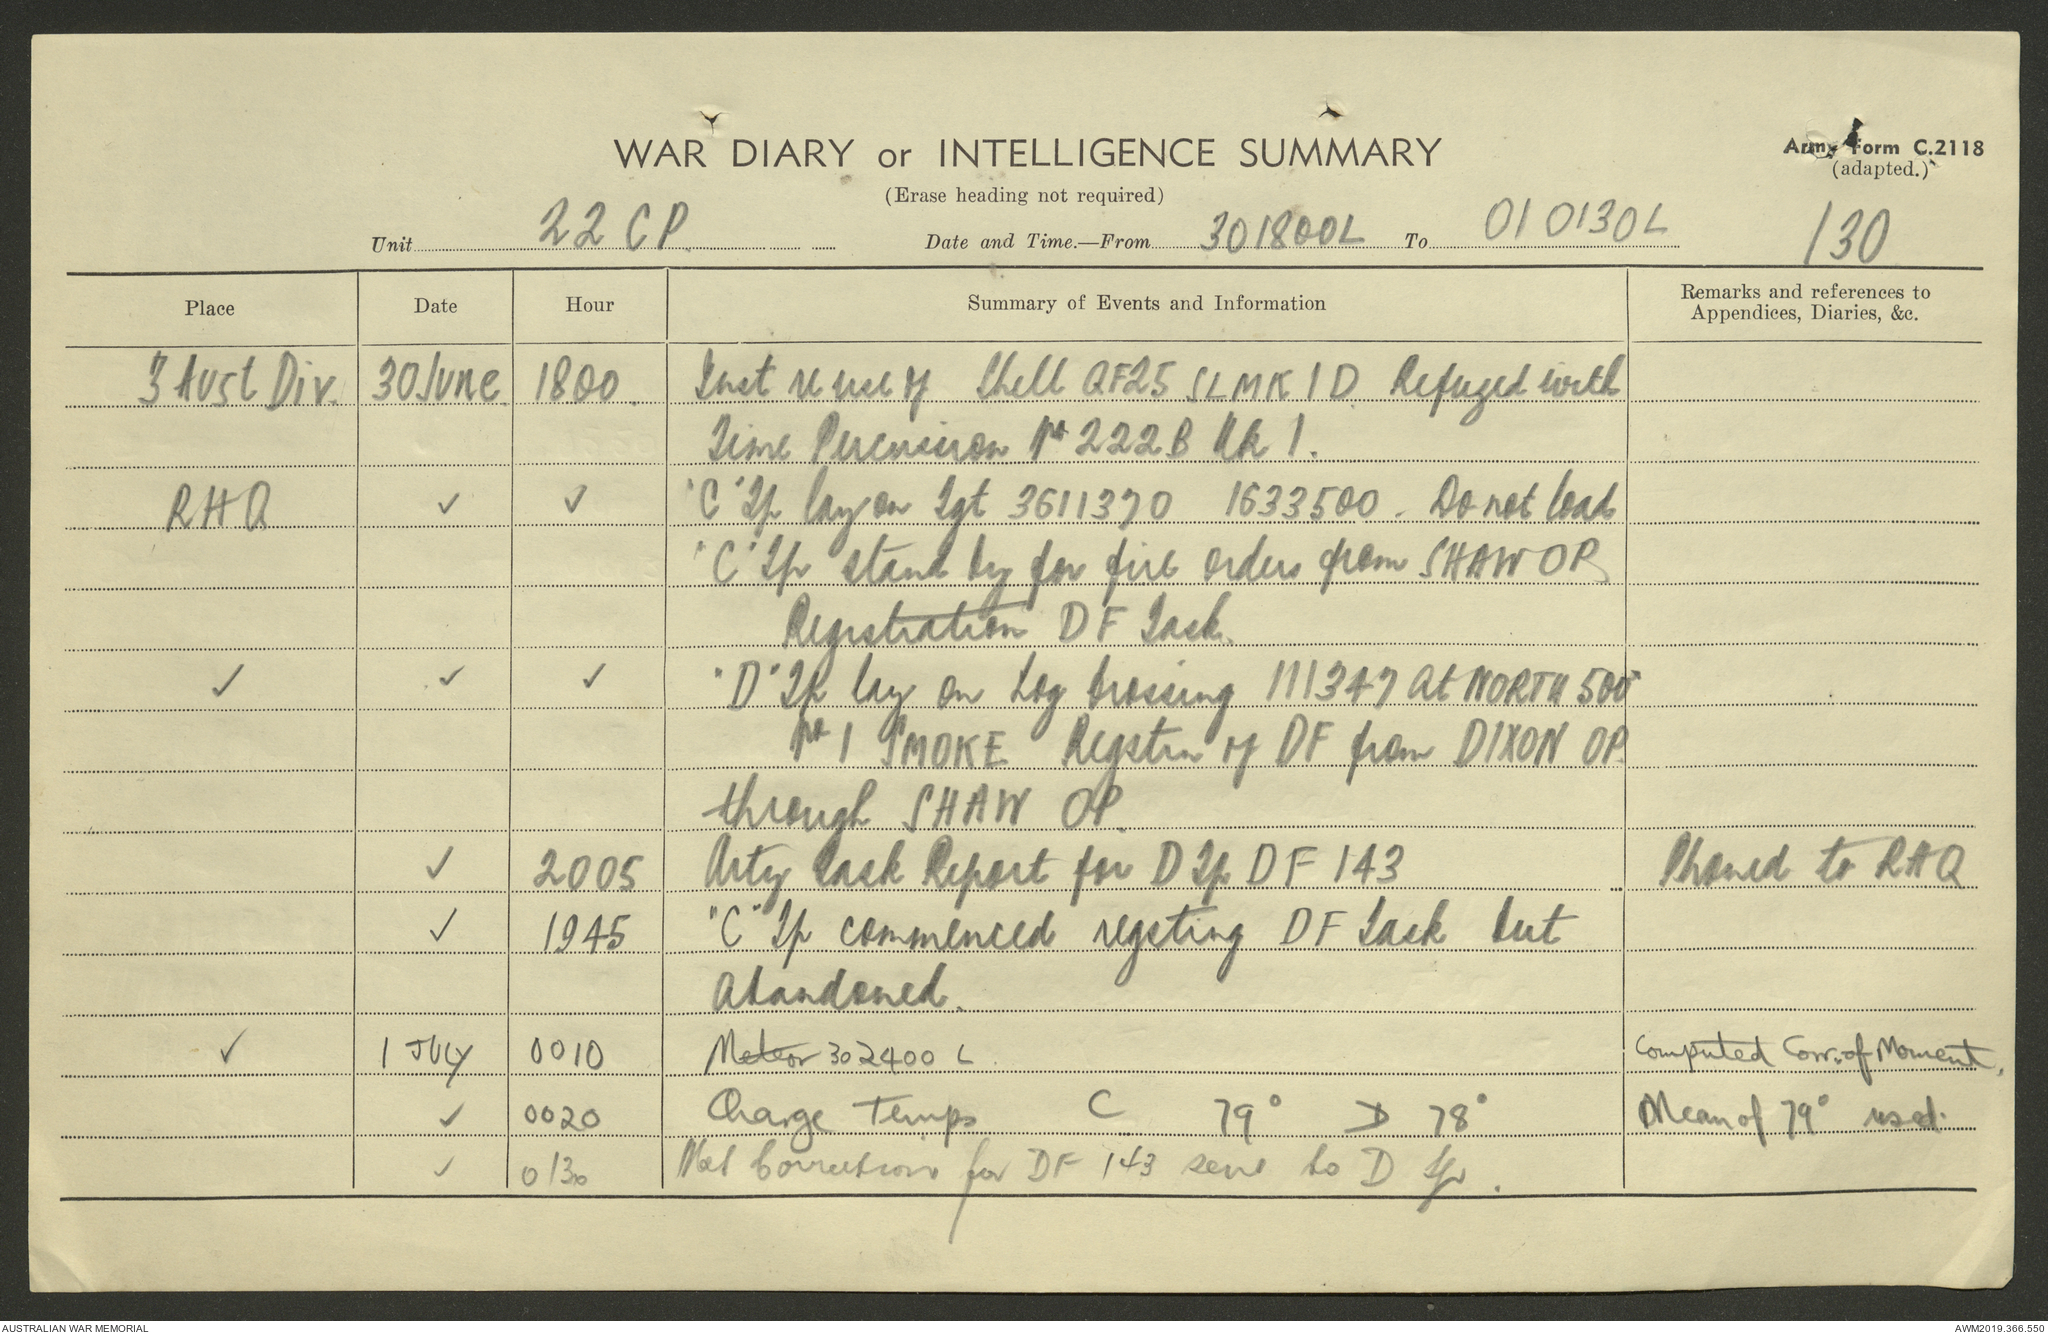 WAR DIARY or INTELLIGENCE SUMMARY
(Erase heading not required)
Army Form C.2118
(adapted.)
130
Unit 22 CP. Date and Time.—From 301800L To 010130L
Place Date Hour Summary of Events and Information Remarks and references to
Appendices, Diaries, &c.
3 Aust Div. 30 June 1800. Inst re use of Shell QF25 SL MK 1 D Refuzed with
Time Percussion No 222B Mk 1.
RHQ ✓ ✓ "C" Tp lay on Tgt 3611370 1633500. Do not load
"C" Tp stand by for fire orders from SHAW OP
Registration DF Task.
✓ ✓ ✓ "D" Tp lay on Log Crossing 111347 at NORTH 500
No 1 SMOKE Regstrn of DF from DIXON OP.
through SHAW OP.
✓ 2005 Arty Task Report for D Tp DF 143 Phoned to RHQ
✓ 1945 "C" Tp commenced regsting DF Task but
abandoned.
✓ 1 JULY 0010 Meteor 302400 L. Computed Corr. of Moment.
✓ 0020 Charge Temps C 79° D 78° Mean of 79° used.
✓ 0130 Met Corrections for DF 143 sent to D Tp.
AUSTRALIAN WAR MEMORIAL
AWM2019.366.550